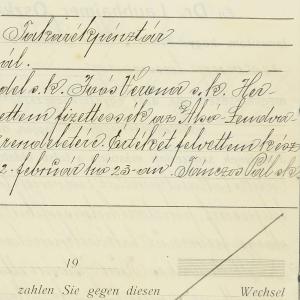 Takarékpénztár
ál.
del s.k. Joós Verona s.k. Her-
ettem fizettessék az Alsó-Lendva
rendeletére. Értékét felvettem kész
2. február hó 23-án. Tánczos Pál sk
19
zahlen Sie gegen diesen Wechsel